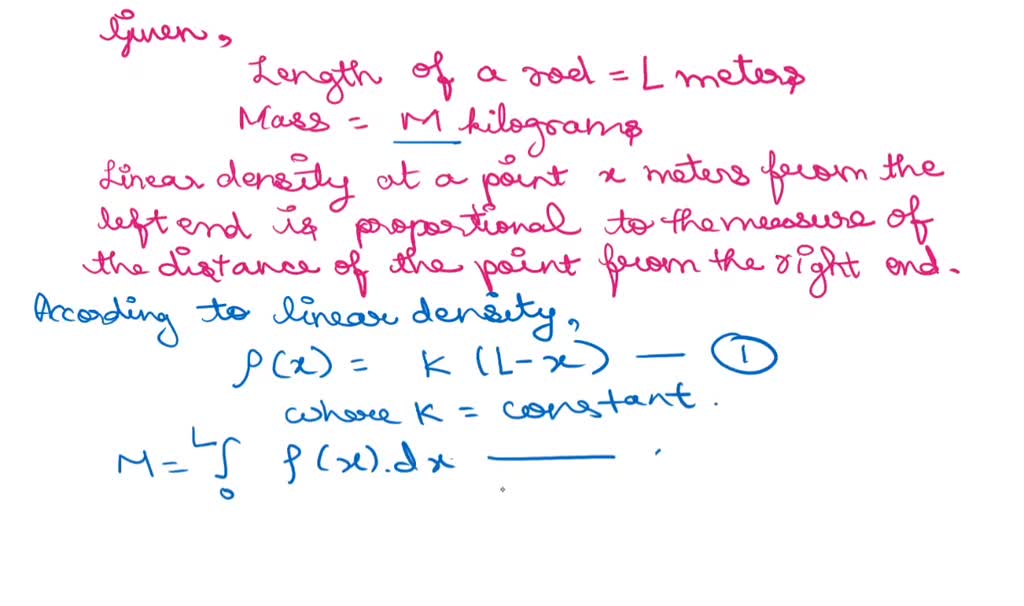 Given,
Length of a rod = L meters
Mass = M kilograms
Linear density at a point x meters from the
left end is proportional to the measure of
the distance of the point from the right end.
According to linear density,
ρ(x) = K (L-x) — ①
where K = constant.
M = ∫₀ᴸ ρ(x).dx —